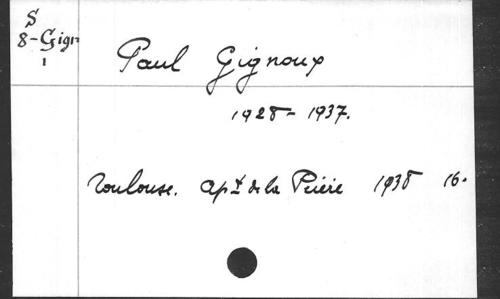 S
8-Gign
1
Paul Gignoux
1928-1937.
Toulouse. Ap<sup>t</sup> de la Prière 1938 16.